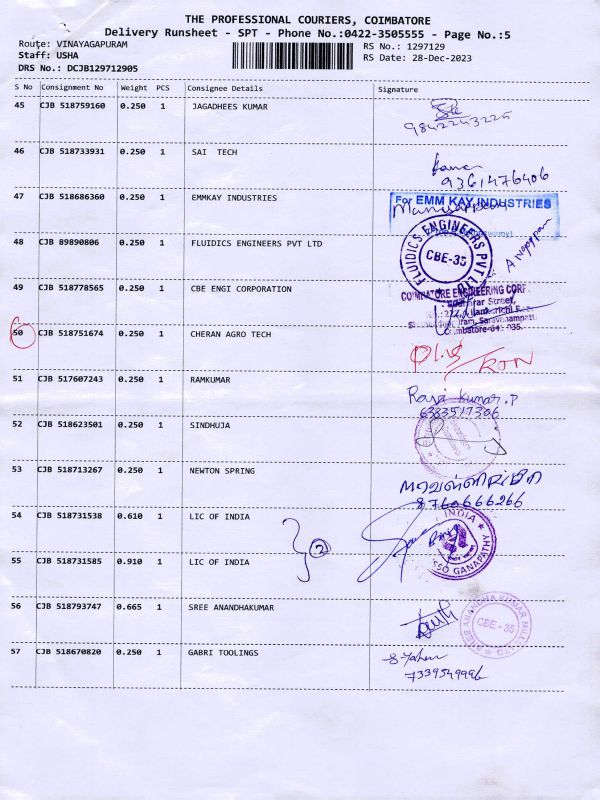 THE PROFESSIONAL COURIERS, COIMBATORE
Delivery Runsheet - SPT - Phone No.:0422-3505555 - Page No.:5
Route: VINAYAGAPURAM
RS No.: 1297129
Staff: USHA
RS Date: 28-Dec-2023
DRS No.: DCJB129712905
S No Consignment No Weight PCS Consignee Details Signature
45 CJB 518759160 0.250 1 JAGADHEES KUMAR
9842243225
46 CJB 518733931 0.250 1 SAI TECH
9361476406
47 CJB 518686360 0.250 1 EMMKAY INDUSTRIES
For EMM KAY INDUSTRIES
48 CJB 89890806 0.250 1 FLUIDICS ENGINEERS PVT LTD
FLUIDICS ENGINEERS PVT
CBE-35
49 CJB 518778565 0.250 1 CBE ENGI CORPORATION
COIMBATORE ENGINEERING CORP.
Street,
50 CJB 518751674 0.250 1 CHERAN AGRO TECH
51 CJB 517607243 0.250 1 RAMKUMAR
Ravi Kumar.P
6383517306
52 CJB 518623501 0.250 1 SINDHUJA
53 CJB 518713267 0.250 1 NEWTON SPRING
8760666266
54 CJB 518731538 0.610 1 LIC OF INDIA
2
INDIA
SSO GANAPATHY
55 CJB 518731585 0.910 1 LIC OF INDIA
56 CJB 518793747 0.665 1 SREE ANANDHAKUMAR
CBE - 35
57 CJB 518670820 0.250 1 GABRI TOOLINGS
7339549996